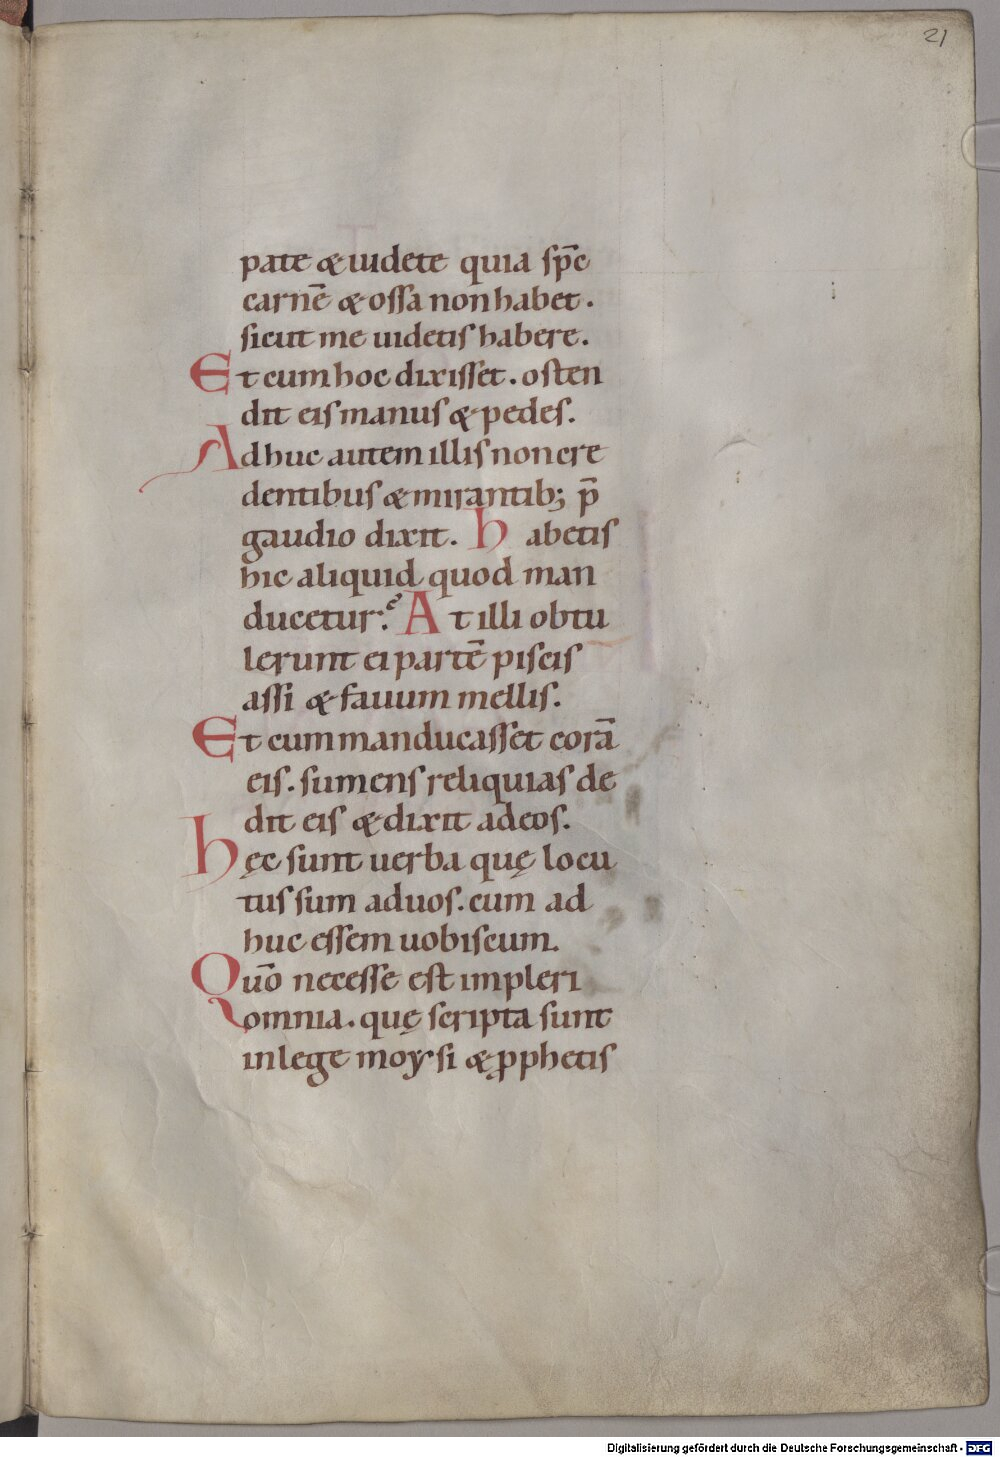 21
pate & uidete quia sp̄c
carnē & ossa non habet.
sicut me uidetis habere.
Et cum hoc dixisset. osten
dit eis manus & pedes.
Adhuc autem illis non cre
dentibus & mirantib; p̄
gaudio dixit. habetis
hic aliquid quod man
ducetur? At illi obtu
lerunt ei partē piscis
assi & fauum mellis.
Et cum manducasset corā
eis. sumens reliquias de
dit eis & dixit ad eos.
hęc sunt uerba quę locu
tus sum ad uos. cum ad
huc essem uobiscum.
Quō necesse est impleri
omnia. quę scripta sunt
in lege moysi & ꝓphetis
Digitalisierung gefördert durch die Deutsche Forschungsgemeinschaft - DFG